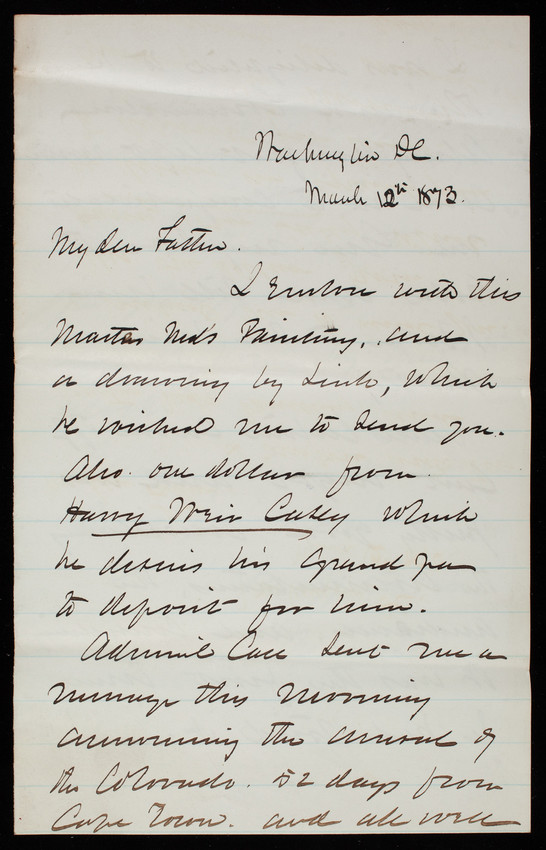 Washington DC.
March 12th 1873.
My dear Father.
I Enclose with this
Master Ned's Painting, and
a drawing by Links, which
he wished me to send you.
Also one dollar from
Harry Weir Casey which
he desires his Grand pa
to deposit for him.
Admiral Case sent me a
message this morning
announcing the arrival of
the Colorado. 52 days from
Cape Town. and all well